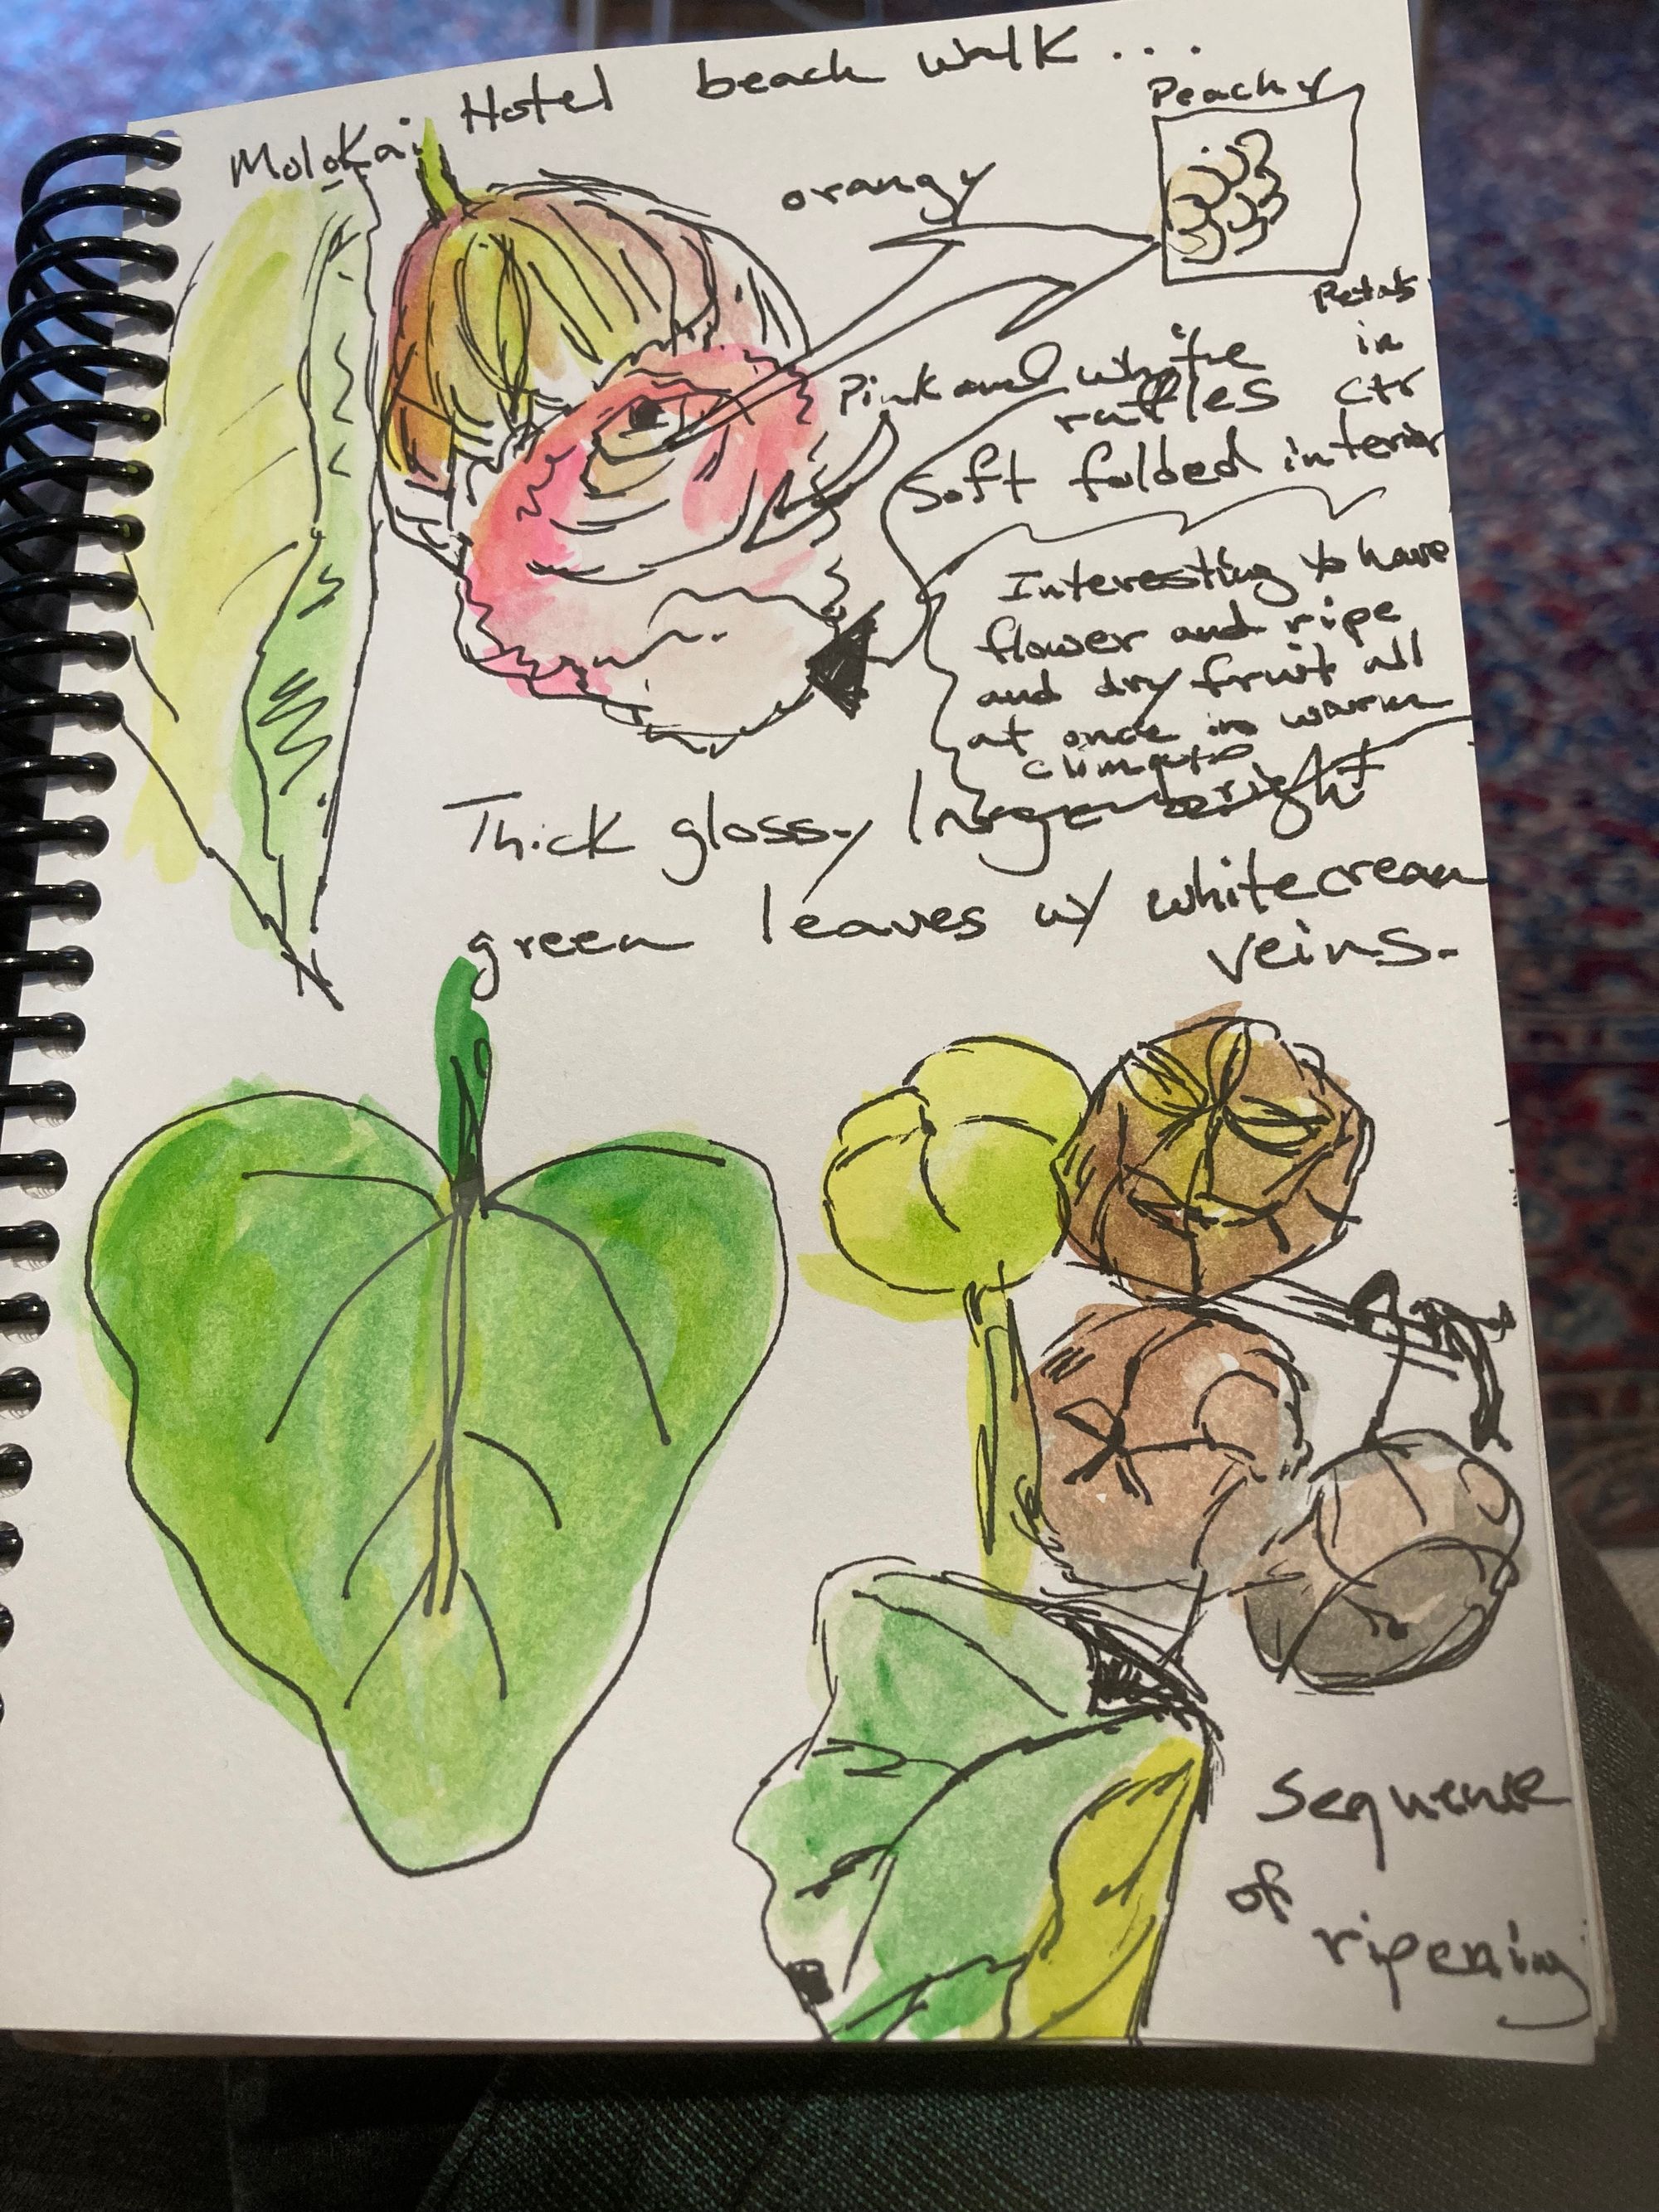 Molokai Hotel beach walk...
Peachy
orangy
Petals
in
ctr
Pink and white
ruffles
Soft folded interior
Interesting to have
flower and ripe
and dry fruit all
at once in warm
climate
Thick glossy large bright
green leaves w/ whitecream
veins.
Sequence
of
ripening